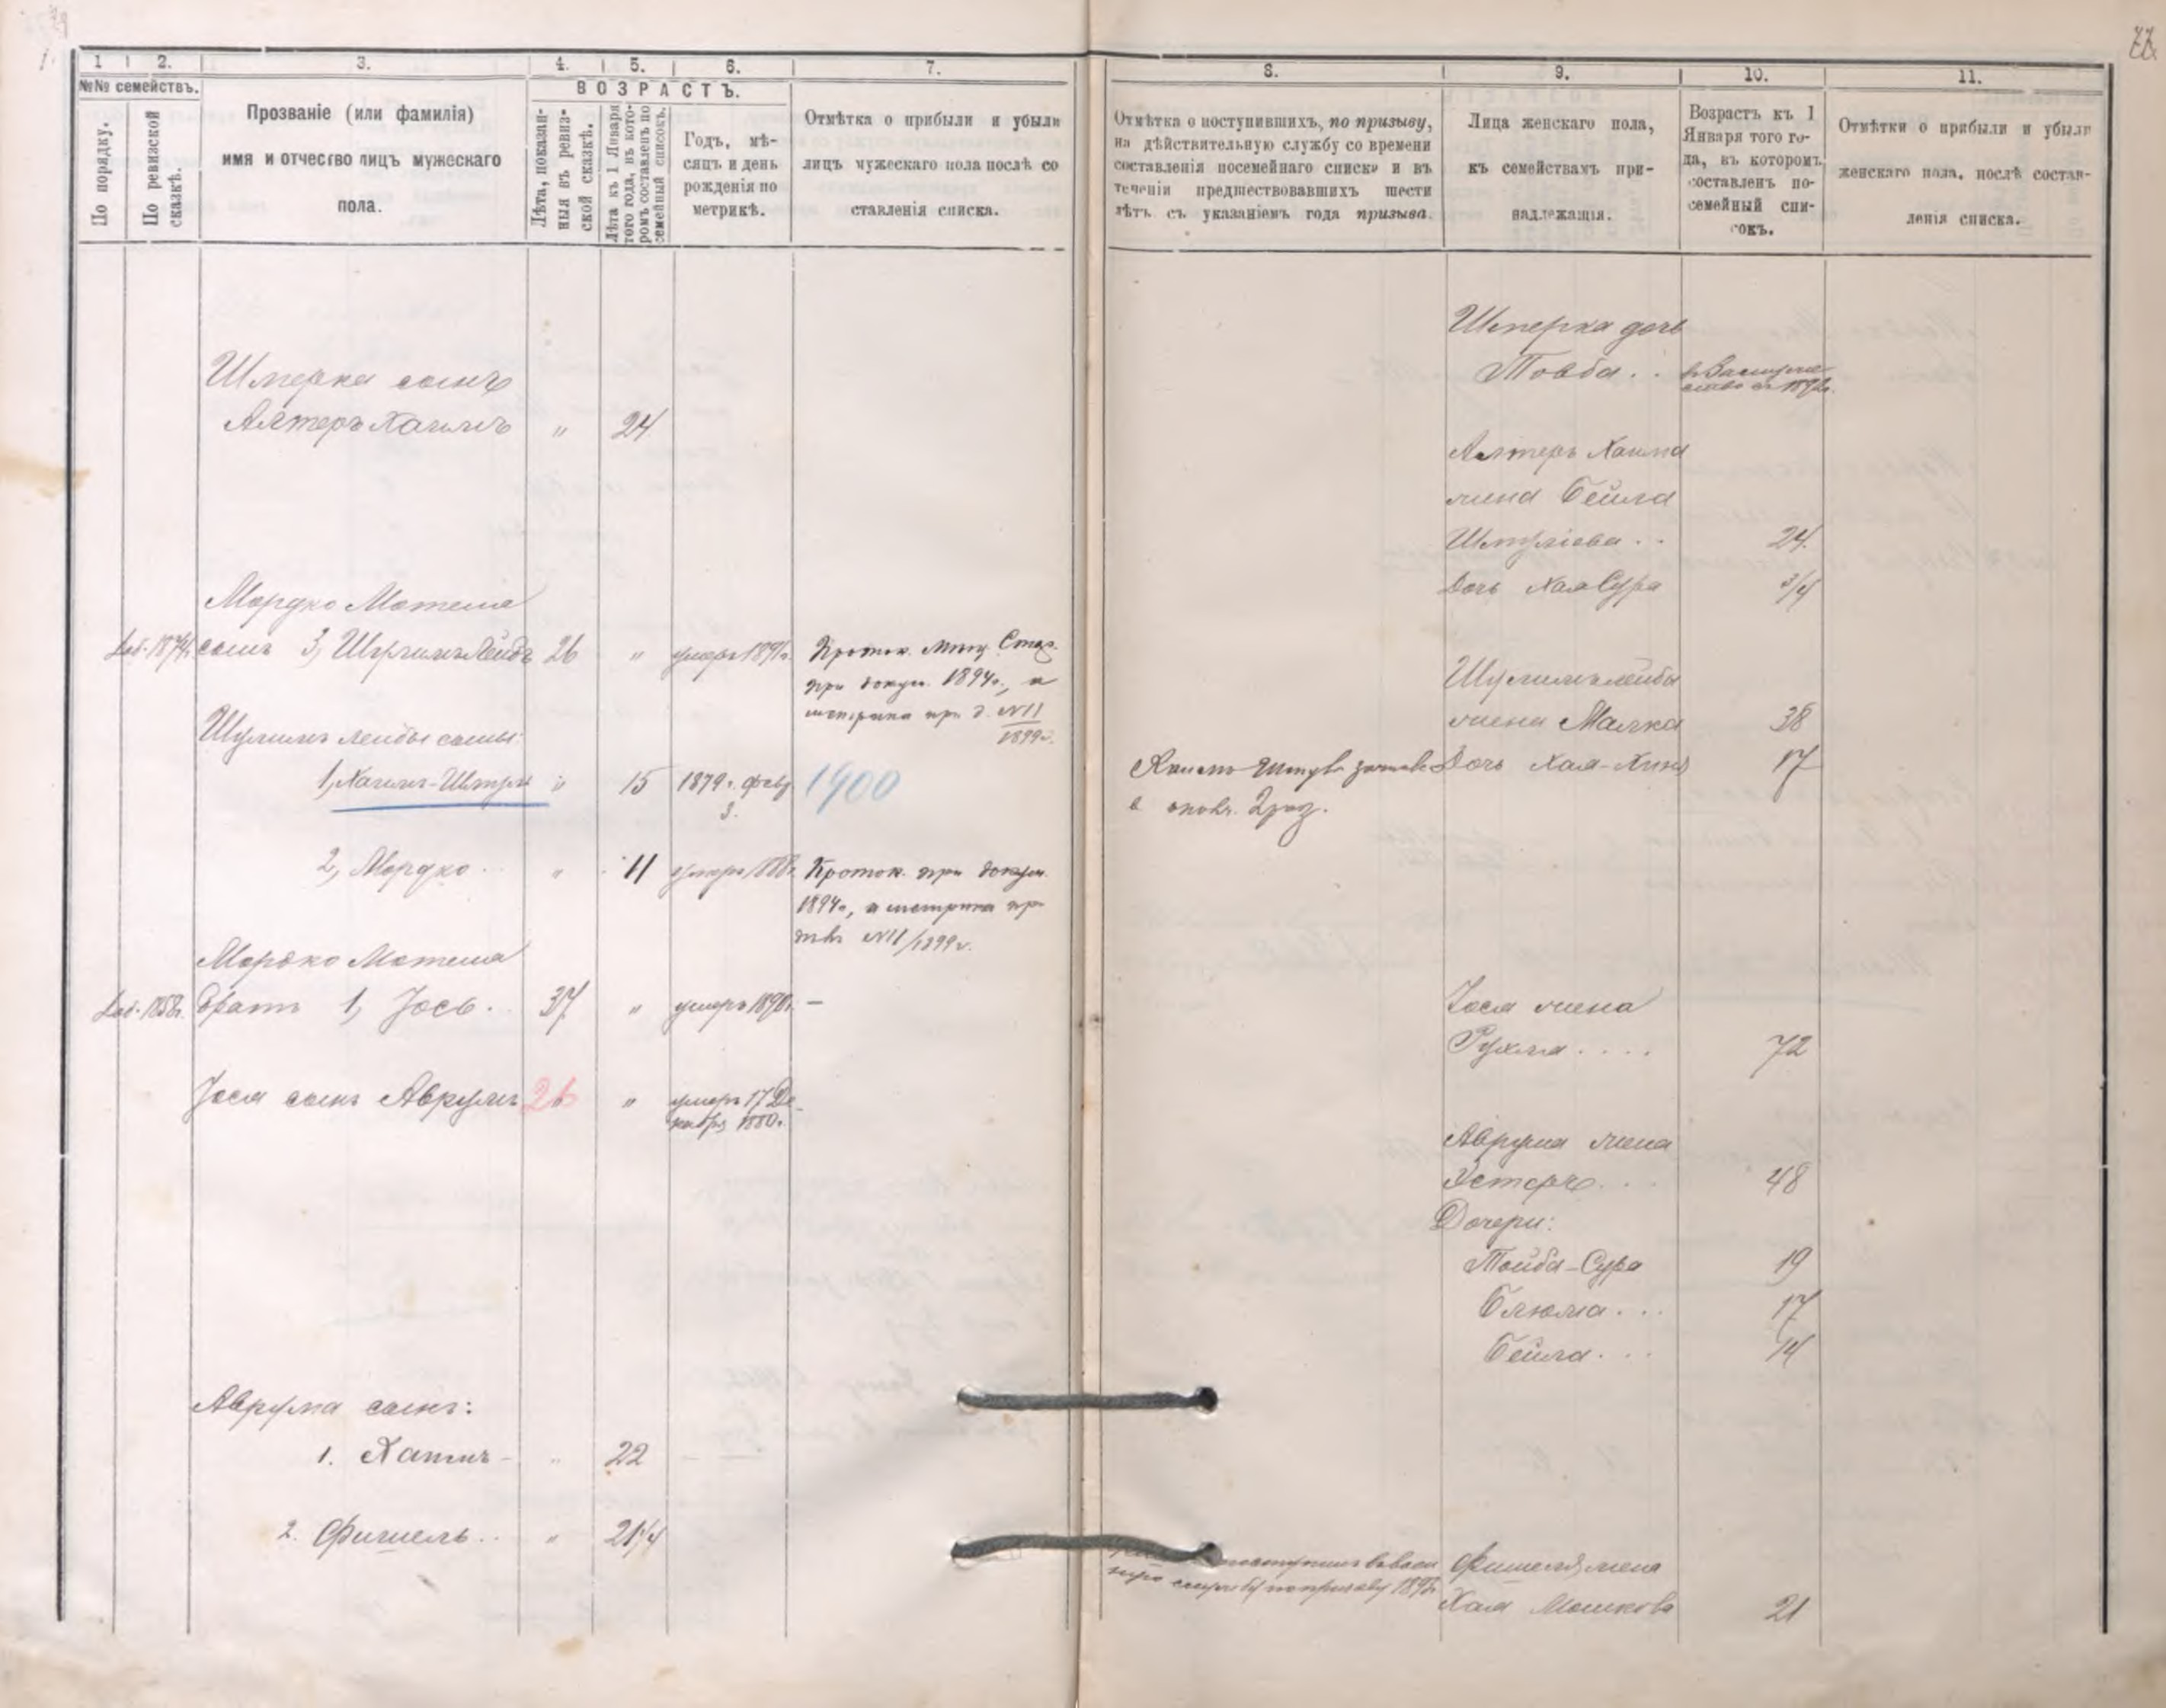 77
1
2.
3.
4.
5.
6.
7.
№№ семействъ.
ВОЗРАСТЪ.
По порядку.
По ревизской
сказкѣ.
Прозваніе (или фамилія)
имя и отчество лицъ мужескаго
пола.
Лѣта, показан-
ныя въ ревиз-
ской сказкѣ.
Лѣта къ 1 Января
того года, въ кото-
ромъ составленъ по
семейный списокъ.
Годъ, мѣ-
сяцъ и день
рожденія по
метрикѣ.
Отмѣтка о прибыли и убыли
лицъ мужескаго пола послѣ со
ставленія списка.
Шмерка сынъ
Алтеръ Хаимъ " 24
Мордко Мотеля
сынъ 3, Шулимъ Лейбъ 26 " умеръ 1891г.
при докум. 1894г., а
метрика при д. №11
1899г.
Шулимъ Лейбы сыны:
1, Хаимъ-Шмуль " 15 1879 г. февр 1900
3.
2, Мордко .. " 11 умеръ 1888г. Проток. при докум.
1894г., а метрика пр
№11/1899г.
Мордко Мотеля
Доб. 1858г. братъ 1, Іось . . 37 " умеръ 1890г. —
Іося сынъ Аврумъ 26 " умеръ 17 Де-
кабря 1880г. -
Аврума сынъ:
1. Хаимъ - " 22
2. Фишель .. " 21 1/4
8.
9.
10.
11.
Отмѣтка о поступившихъ, по призыву,
на дѣйствительную службу со времени
составленія посемейнаго списка и въ
теченіи предшествовавшихъ шести
лѣтъ съ указаніемъ года призыва.
Лица женскаго пола,
къ семействамъ при-
надлежащія.
Возрастъ къ 1
Января того го-
да, въ которомъ
составленъ по-
семейный спи-
сокъ.
Отмѣтки о прибыли и убыли
женскаго пола, послѣ состав-
ленія списка.
Шмерка дочь
Товба . .
Алтеръ Хаима
жена Бейла
Шмулiева . . 24.
Дочь Хая Сура 3/4
Шулимъ Лейбы
жена Малка 38
Дочь Хая- 17
в 2 раз.
Іося жена
Рухля . . . . 72
Аврума жена
Эстеръ . . . 48
Дочери:
Тойба-Сура 19
Блюма . . . 17
Бейла . . . 14
Фишеля жена
службу по призыву
Хая Мошкова 21